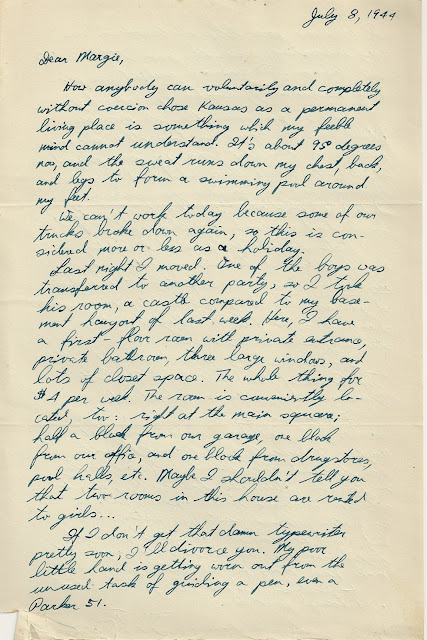 July 8, 1944
Dear Margie,
How anybody can voluntarily and completely
without coercion chose Kansas as a permanent
living place is something which my feeble
mind cannot understand. It's about 95 degrees
now, and the sweat runs down my chest, back,
and legs to form a swimming pool around
my feet.
We can't work today because some of our
trucks broke down again, so this is con-
sidered more or less as a holiday.
Last night I moved. One of the boys was
transferred to another party, so I took
his room, a castle compared to my base-
ment hangout of last week. Here, I have
a first-floor room with private entrance,
private bathroom, three large windows, and
lots of closet space. The whole thing for
$4 per week. The room is conveniently lo-
cated, too: right at the main square;
half a block from our garage, one block
from our office, and one block from drugstores,
pool halls, etc. Maybe I shouldn't tell you
that two rooms in this house are rented
to girls...
If I don't get that damn typewriter
pretty soon, I'll divorce you. My poor
little hand is getting worn out from the
unused task of guiding a pen, even a
Parker 51.